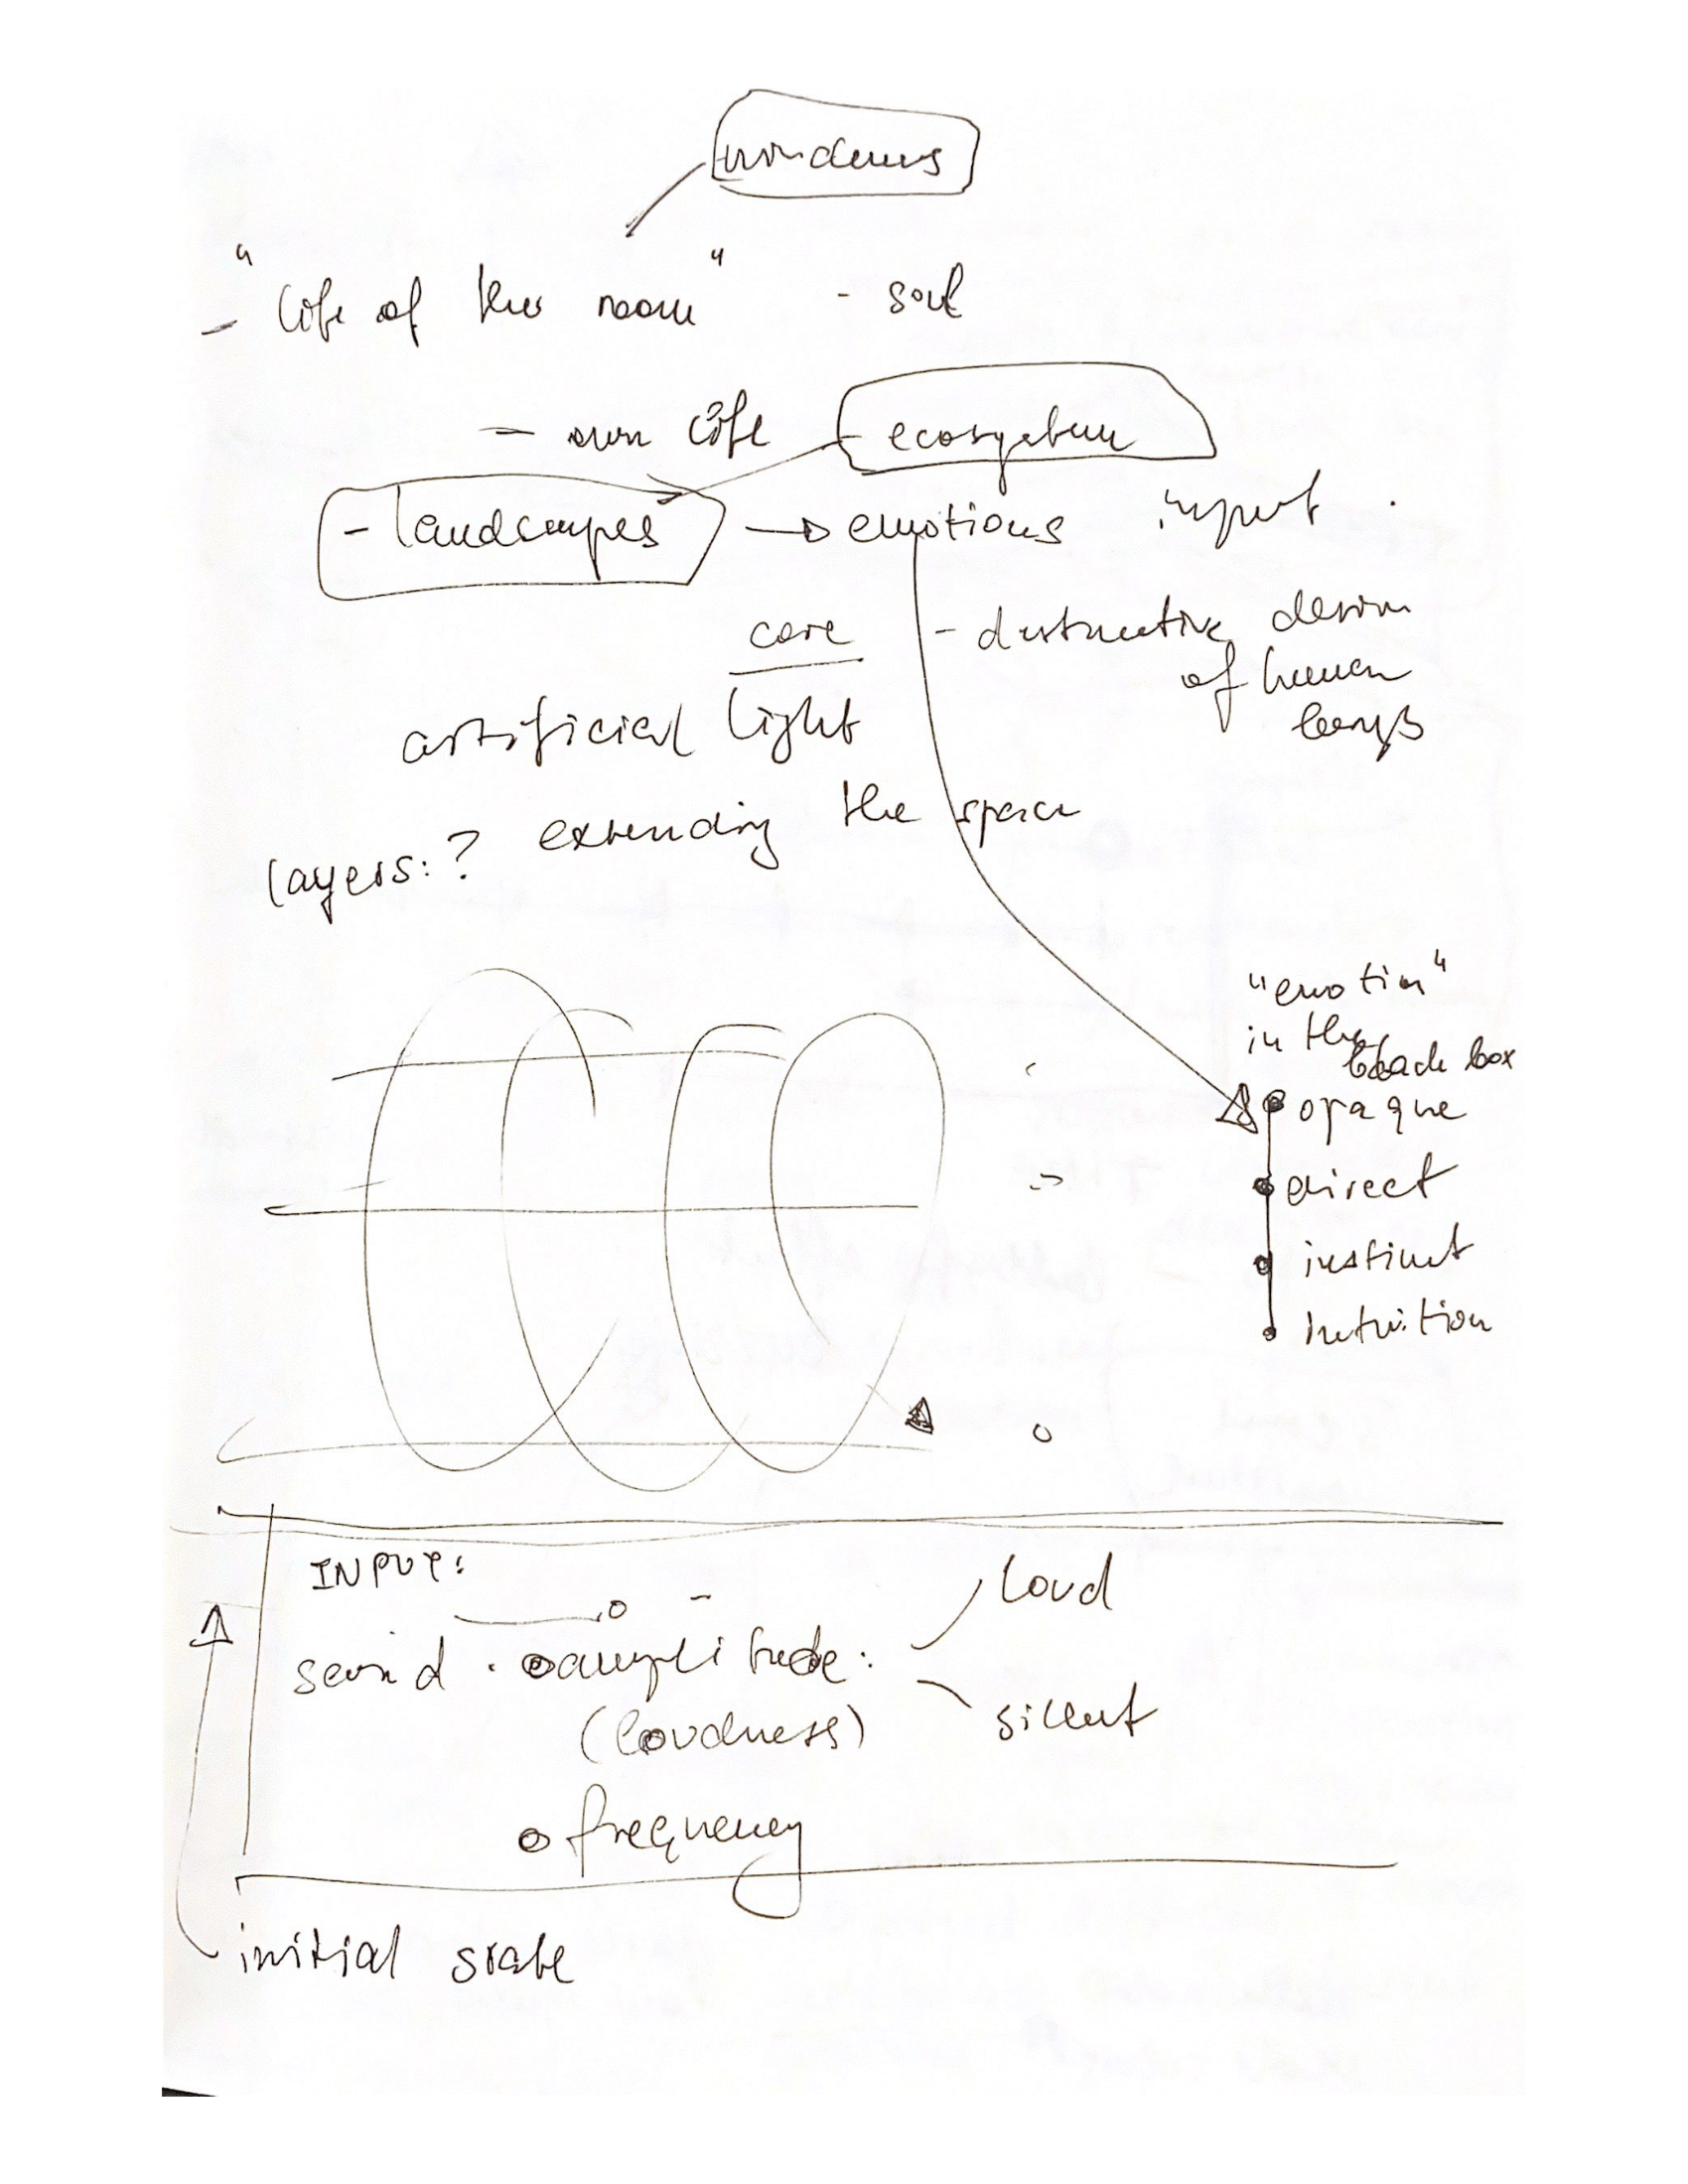 windows
- "life of the room" - soul
- own life - ecosystem
- landscapes → emotions input
core - destructive
of human
artificial light
layers: ? extending the space
"emotion"
in the black box
opaque
direct
instinct
intuition
INPUT:
sound · amplitude: loud
(loudness) silent
frequency
initial state